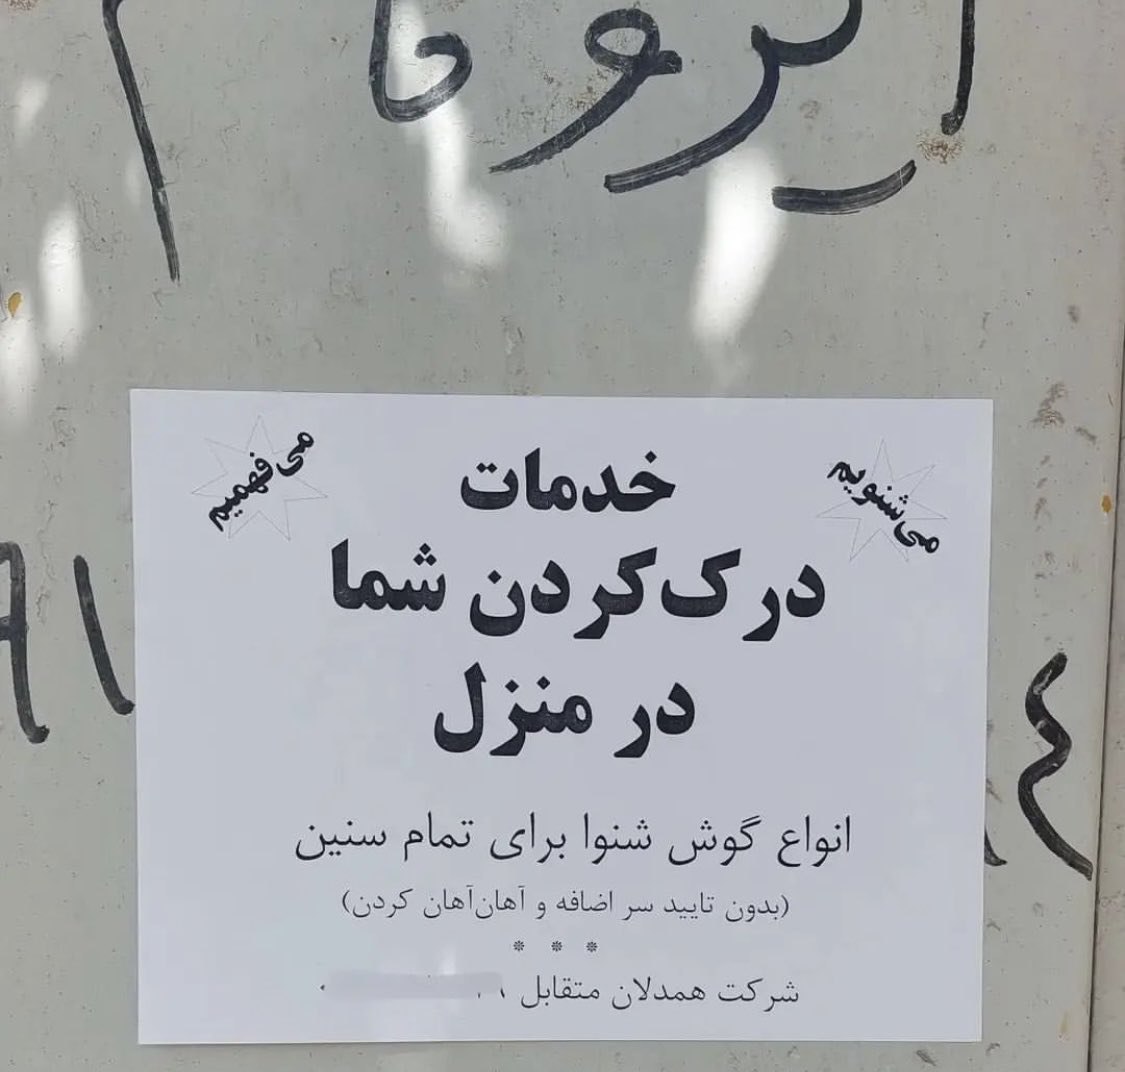 ایزوگام
می‌شنویم
می‌فهمیم
خدمات
درک‌کردن شما
در منزل
انواع گوش شنوا برای تمام سنین
(بدون تایید سر اضافه و آهان‌آهان کردن)
* * *
شرکت همدلان متقابل
۹۱